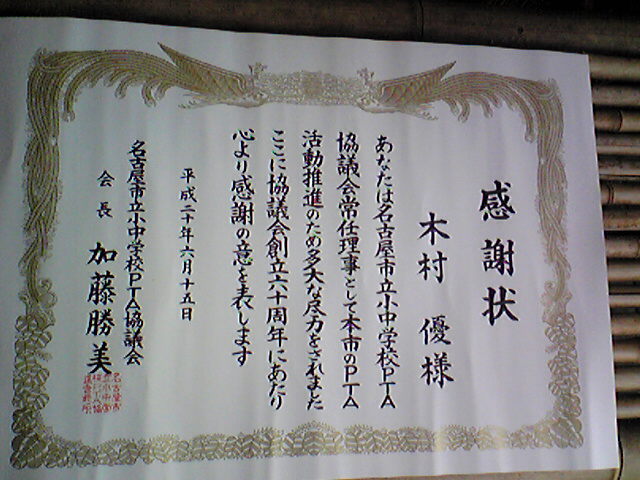 感謝状
木村 優様
あなたは名古屋市立小中学校PTA
協議会常任理事として本市のPTA
活動推進のため多大な尽力をされました
ここに協議会創立六十周年にあたり
心より感謝の意を表します
平成二十年六月十五日
名古屋市立小中学校PTA協議会
会長 加藤勝美